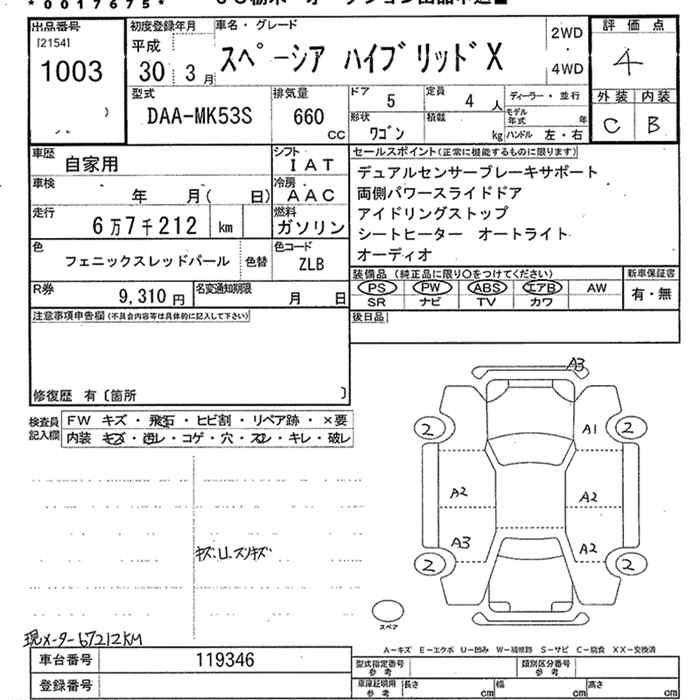 *0017675*
出品番号
[2154]
1003
初度登録年月
平成
30年 3月
車名・グレード
スペーシア ハイブリッドX
2WD
・
4WD
評価点
4
外装 内装
C B
型式
DAA-MK53S
排気量
660
CC
ドア 5
定員 4 人
形状 ワゴン
積載 kg
ディーラー・並行
モデル年式 年
ハンドル 左・右
車歴 自家用
シフト IAT
車検 年 月( 日)
冷房 AAC
走行 6万7千212 km
燃料 ガソリン
色 フェニックスレッドパール
色替
色コード ZLB
R券 9,310円
名変通知期限 月 日
セールスポイント(正常に機能するものに限ります)
デュアルセンサーブレーキサポート
両側パワースライドドア
アイドリングストップ
シートヒーター オートライト
オーディオ
装備品(純正品に限り○をつけてください)
PS PW ABS エアB AW
SR ナビ TV カワ
新車保証書
有・無
後日品
注意事項申告欄(不具合内容等は具体的に記入して下さい)
修復歴 有〔箇所 〕
検査員記入欄
FW キズ・飛石・ヒビ割・リペア跡・×要
内装 キズ・汚レ・コゲ・穴・スレ・キレ・破レ
キズ.U.スリキズ
現メーター67212KM
A3
2
A1
2
A2
A2
A3
A2
2
2
スペア
A-キズ E-エクボ U-凹み W-補修跡 S-サビ C-腐食 XX-交換済
車台番号 119346
登録番号
型式指定番号 参考
類別区分番号 参考
車庫証明用 参考
長さ cm
幅 cm
高さ cm